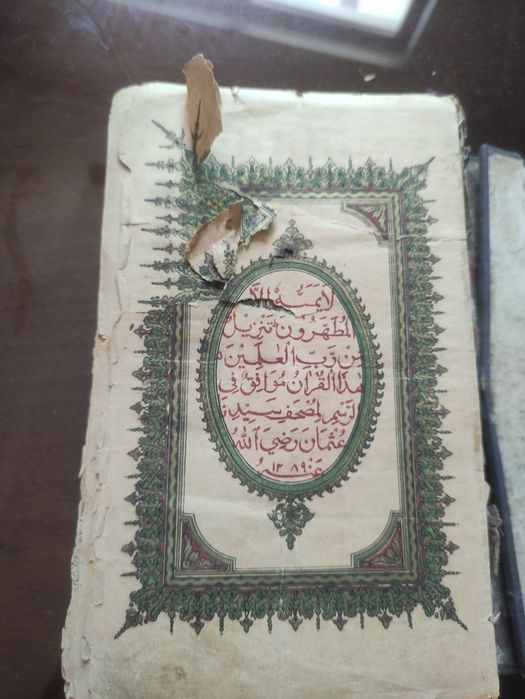 لا يمسه إلا
المطهرون تنزيل
من رب العلمين
هذا القرآن موافق في
الرسم لمصحف سيدنا
عثمان رضي الله
عنه ١٣٨٩